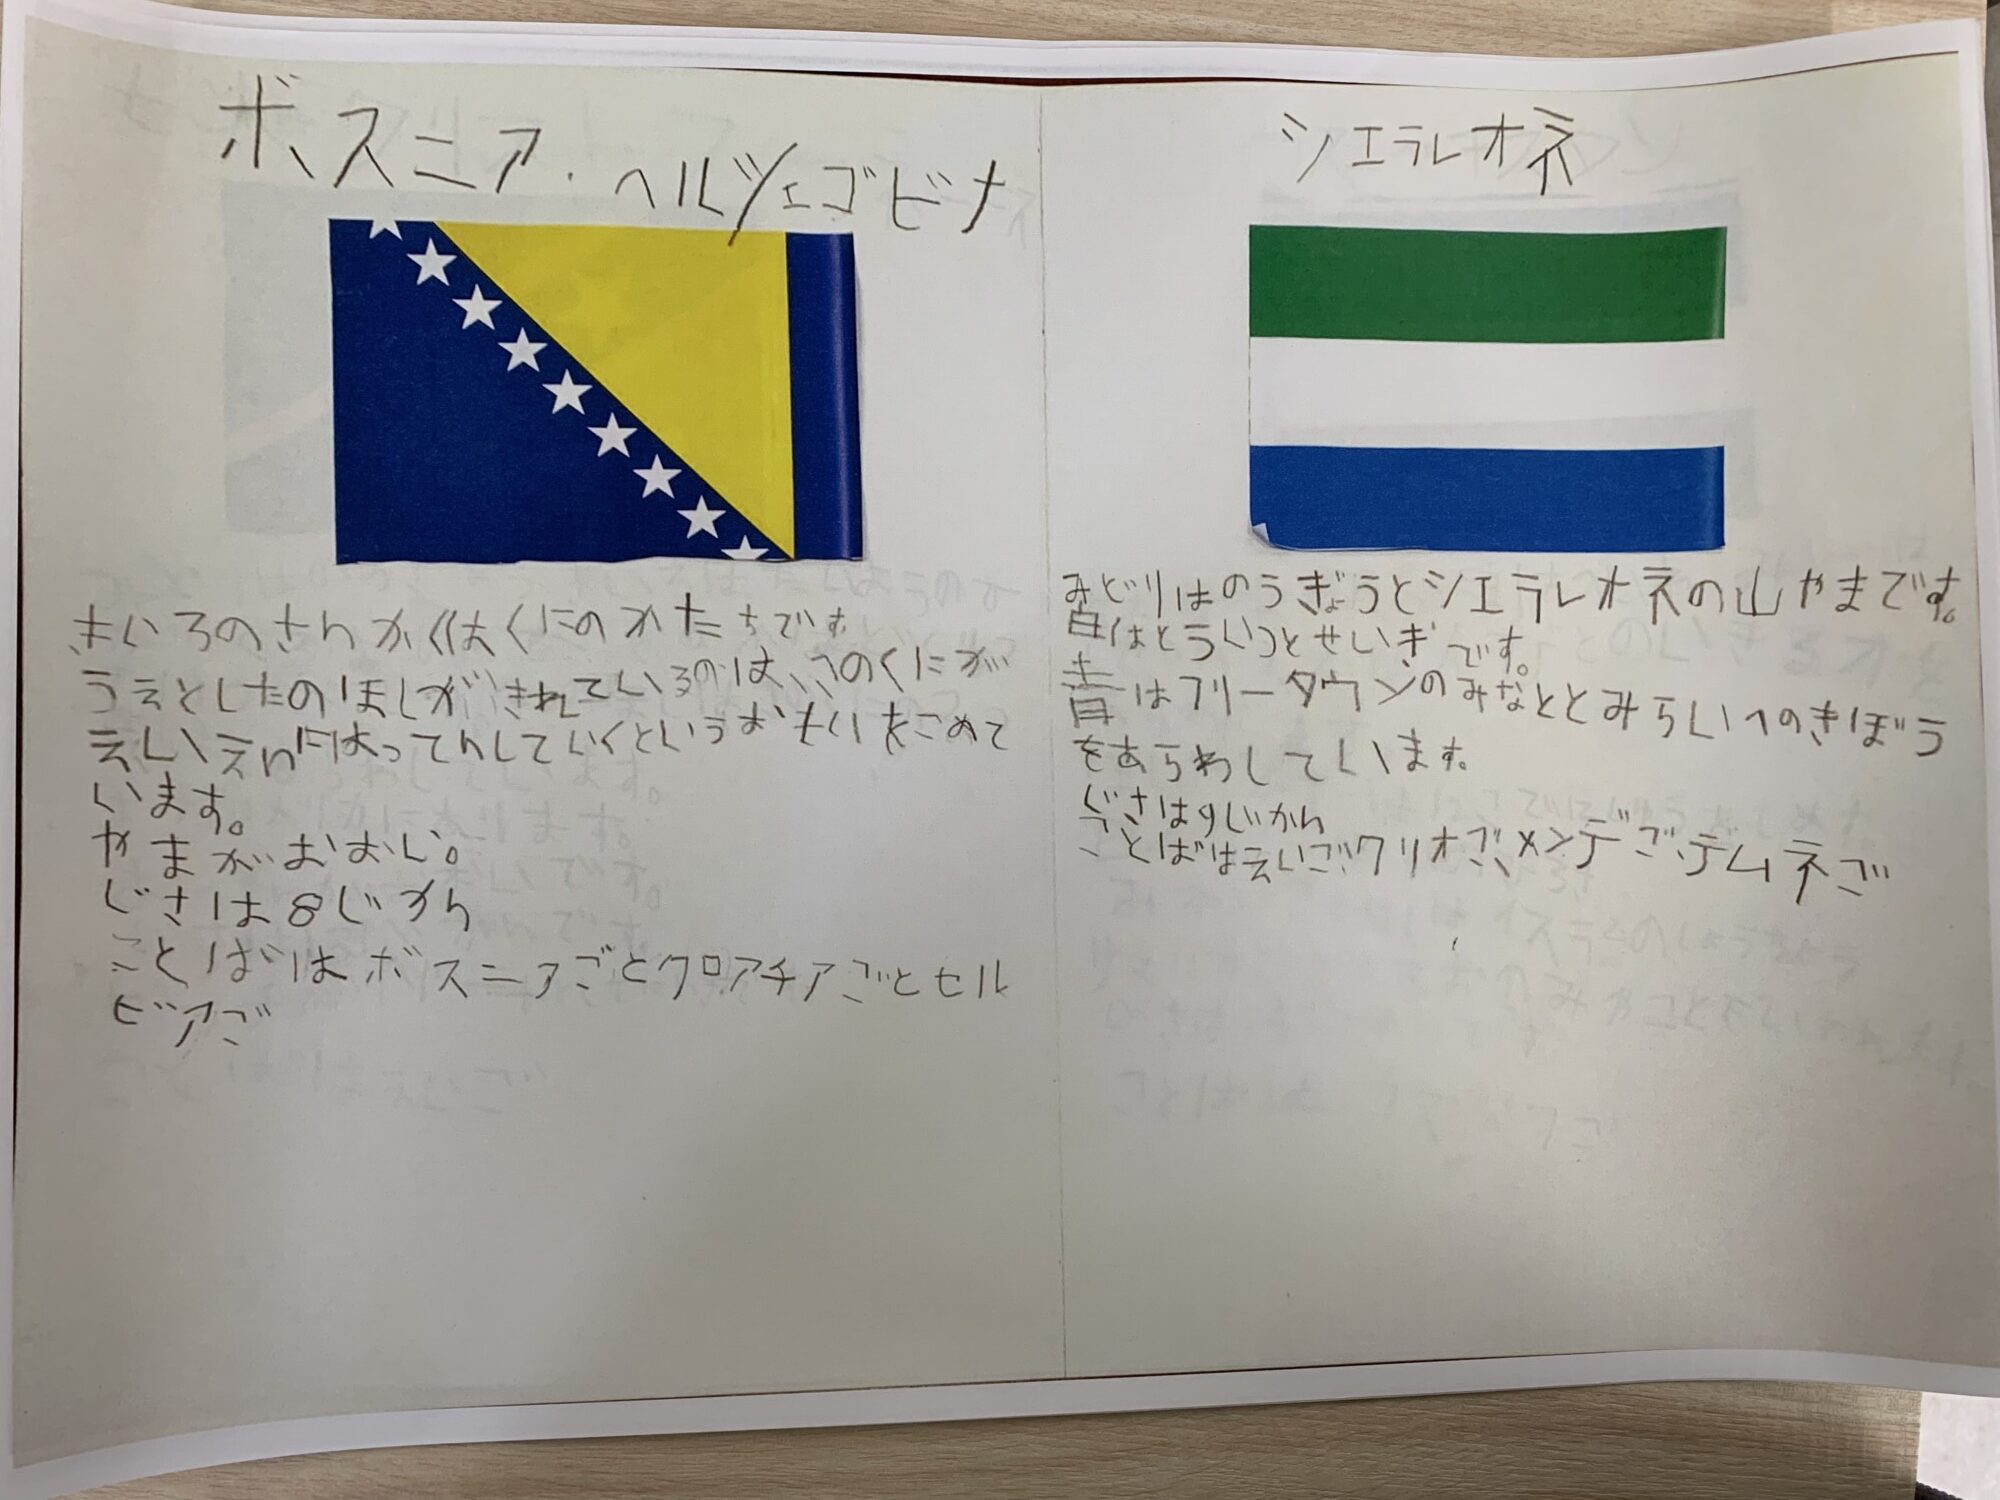 ボスニア・ヘルツェゴビナ
きいろのさんかくはくにのかたちです
うえとしたのほしがきれているのは、このくにが
えいえんにはってんしていくというおもいをこめて
います。
やまがおおい。
じさは8じかん
ことばはボスニアごとクロアチアごとセル
ビアご
シエラレオネ
みどりはのうぎょうとシエラレオネの山やまです。
白はとういつとせいぎです。
青はフリータウンのみなととみらいへのきぼう
をあらわしています。
じさは9じかん
ことばはえいご、クリオご、メンデご、テムネご